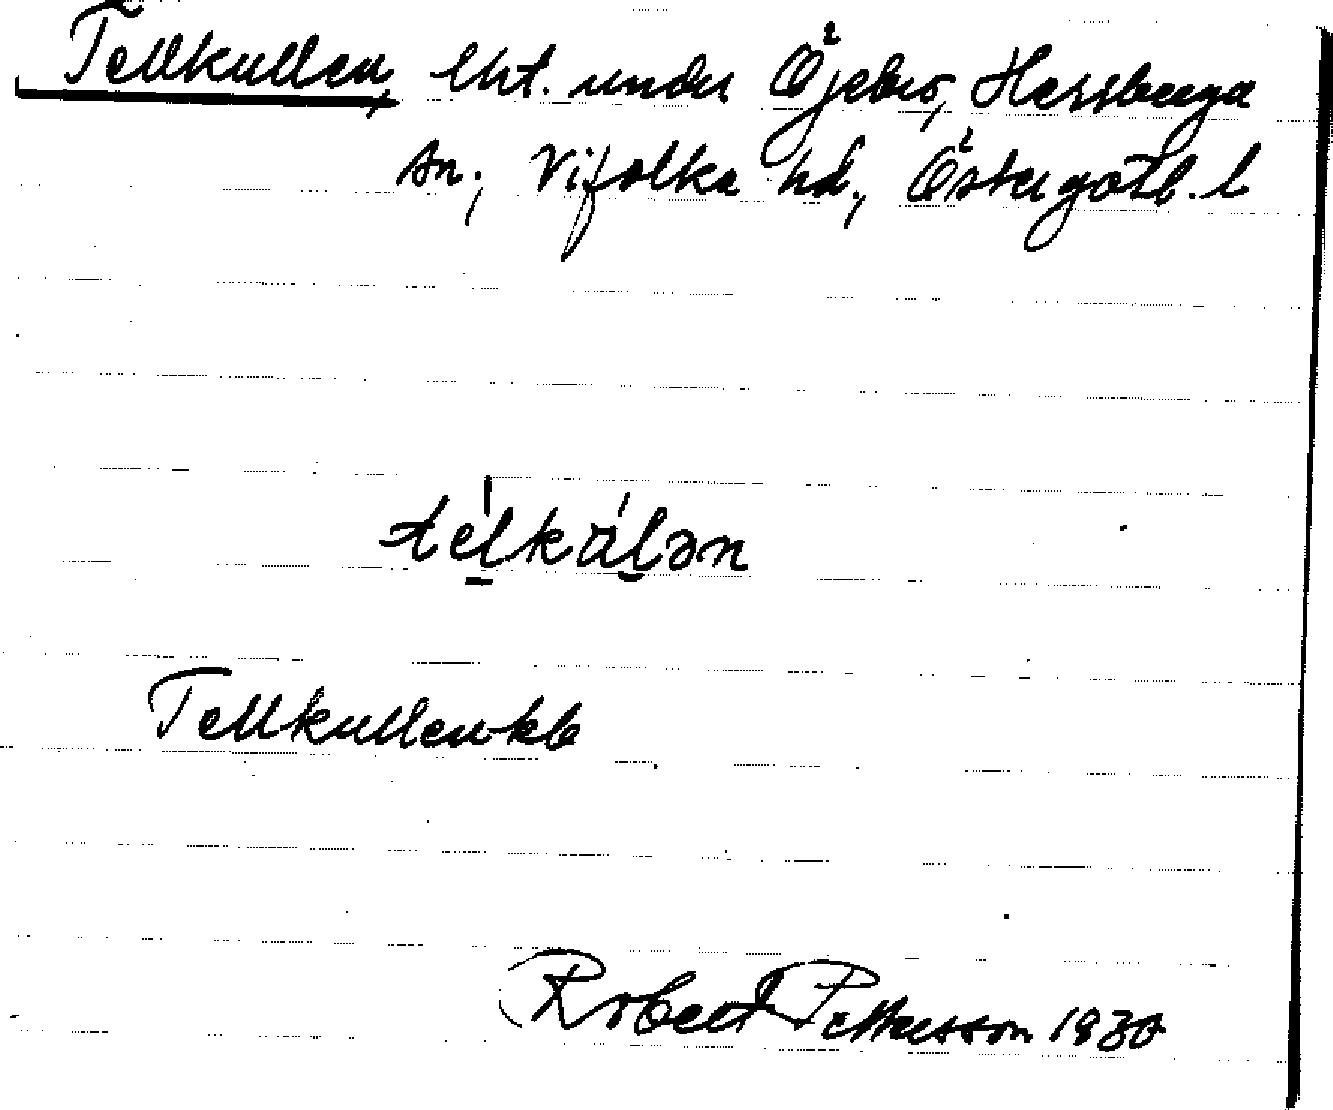 Tellkullen, lht. under Öjebro, Herrberga
sn., Vifolka hd., Östergötl. l
telkulən
Tellkullen kb
Robert Pettersson 1930